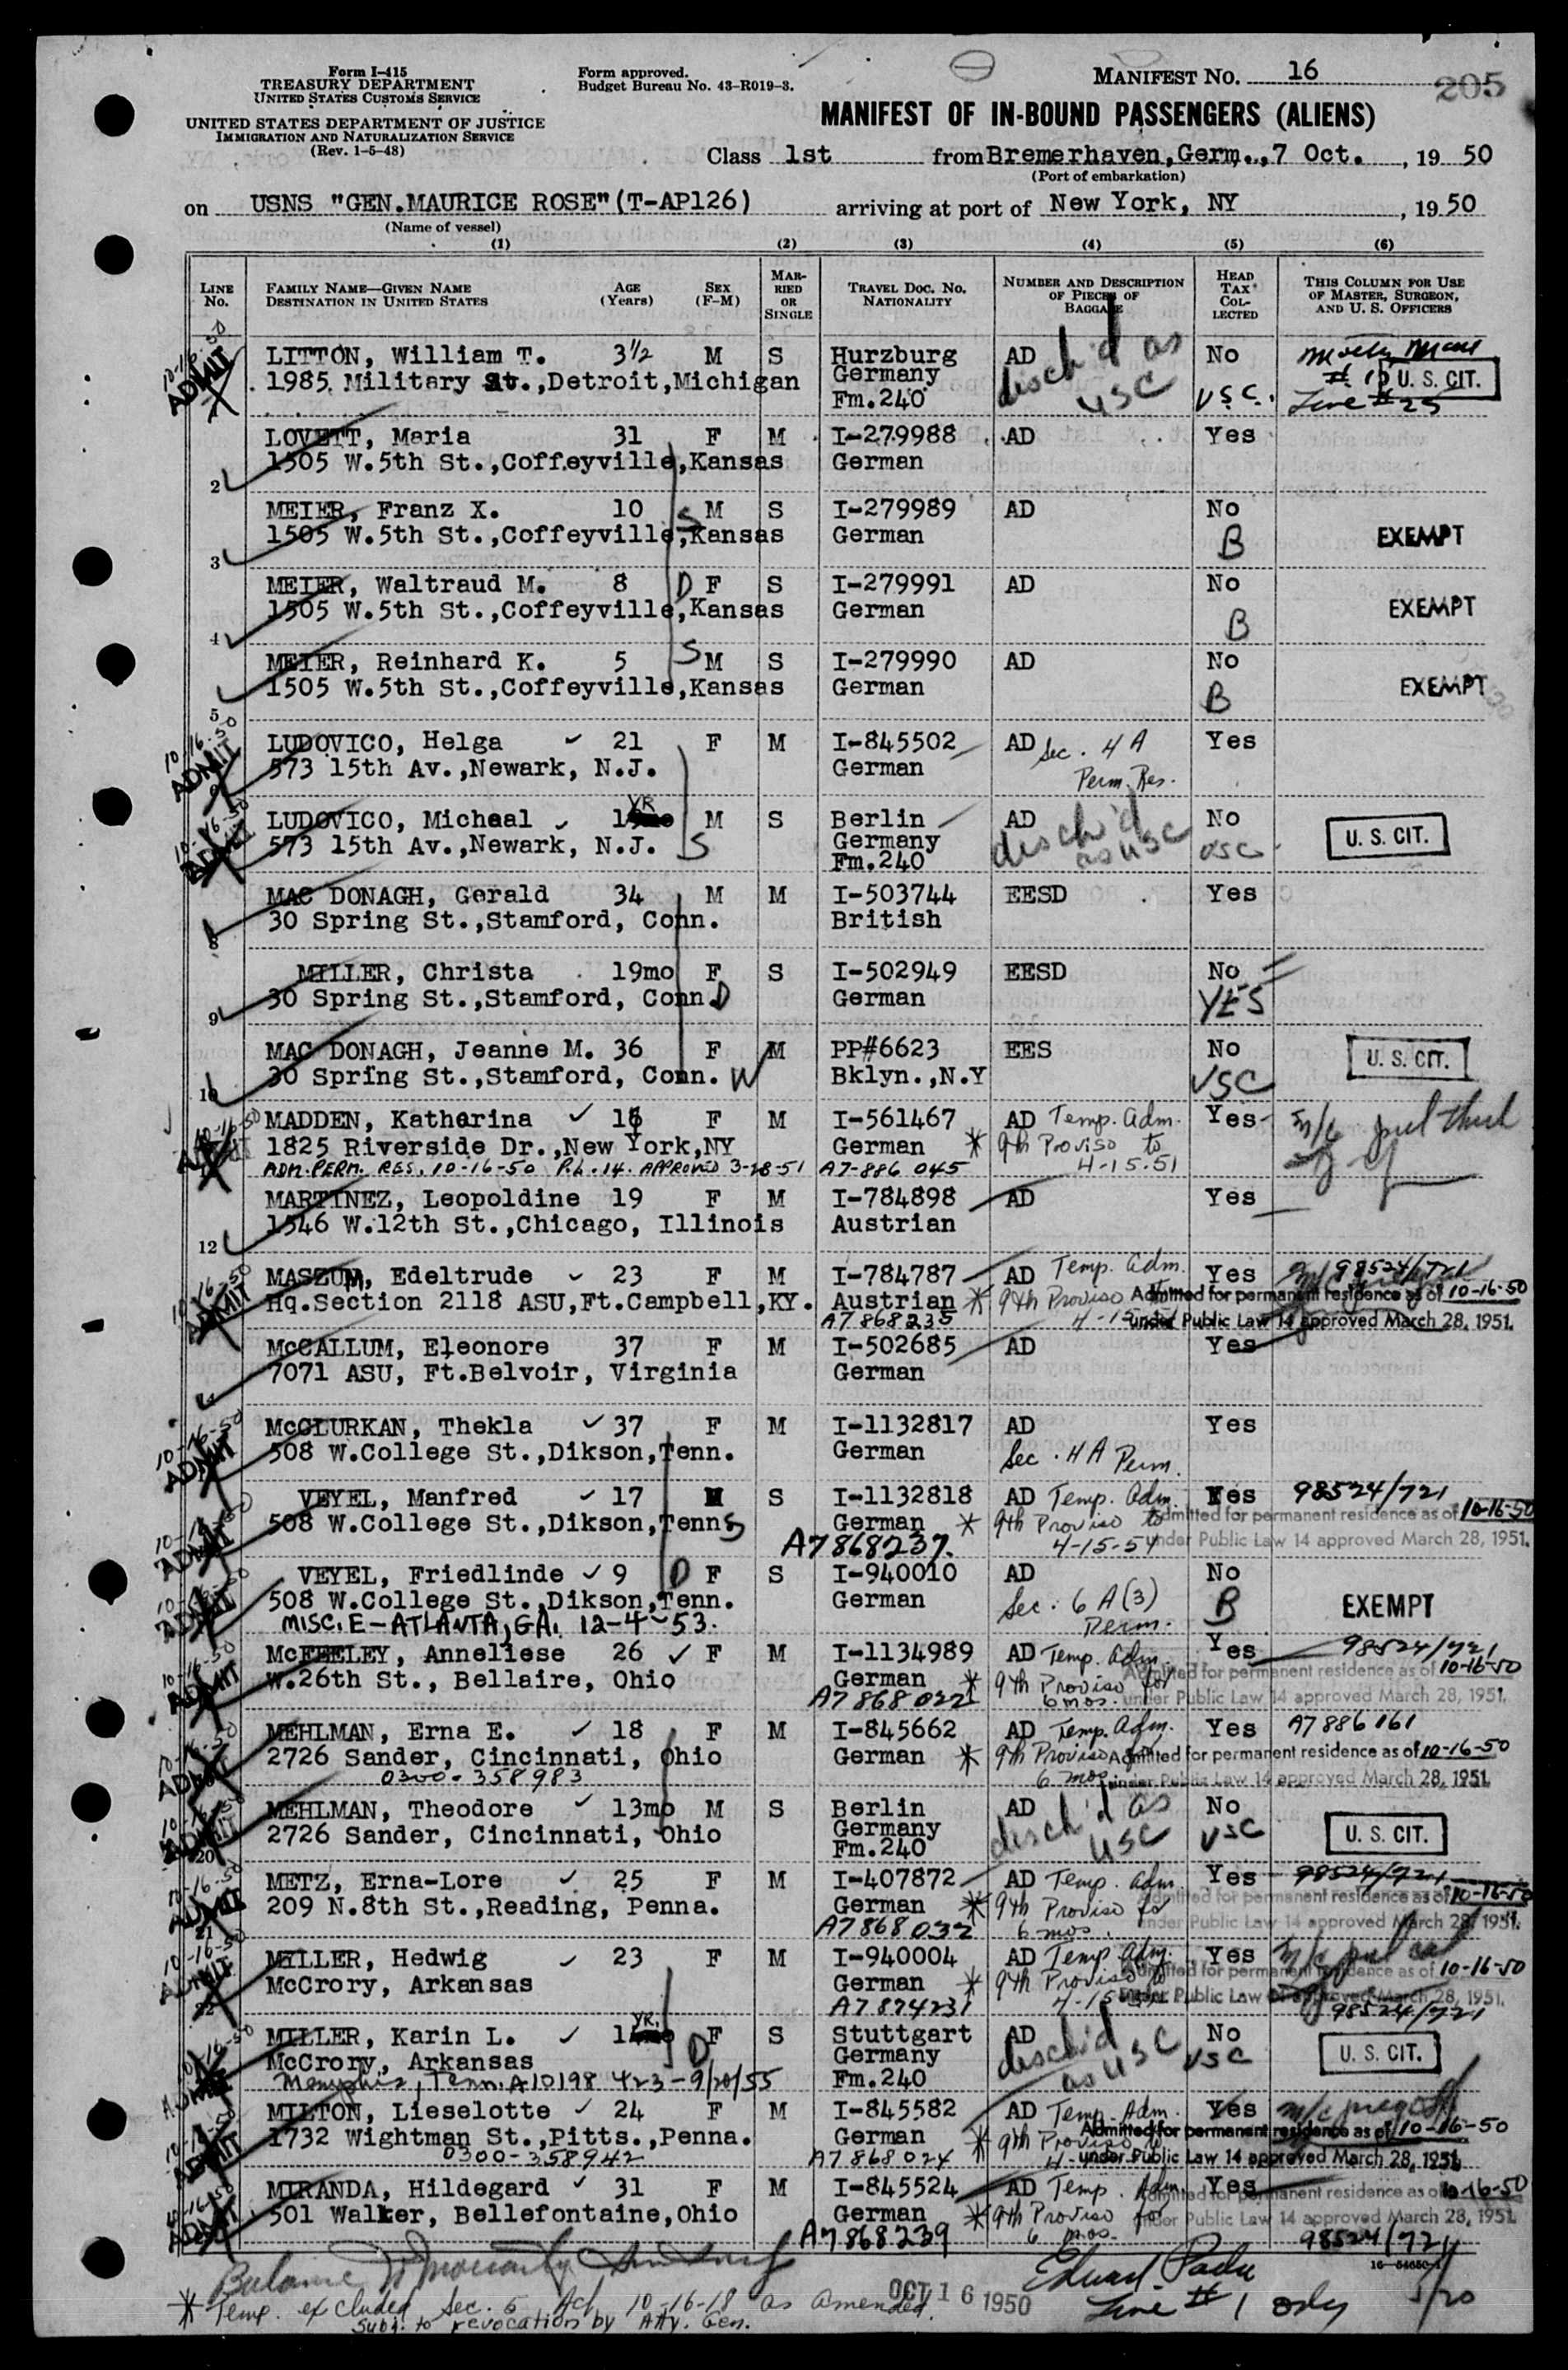 Form I-415
TREASURY DEPARTMENT
UNITED STATES CUSTOMS SERVICE
UNITED STATES DEPARTMENT OF JUSTICE
IMMIGRATION AND NATURALIZATION SERVICE
(Rev. 1-5-48)
Form approved.
Budget Bureau No. 43-R019-3.
MANIFEST NO. 16
205
MANIFEST OF IN-BOUND PASSENGERS (ALIENS)
Class 1st from Bremerhaven, Germ., 7 Oct., 19 50
(Port of embarkation)
on USNS "GEN.MAURICE ROSE"(T-AP126) arriving at port of New York, NY, 19 50
(Name of vessel)
(1) (2) (3) (4) (5) (6)
LINE NO. FAMILY NAME—GIVEN NAME DESTINATION IN UNITED STATES AGE (Years) SEX (F-M) MARRIED OR SINGLE TRAVEL DOC. NO. NATIONALITY NUMBER AND DESCRIPTION OF PIECES OF BAGGAGE HEAD TAX COLLECTED THIS COLUMN FOR USE OF MASTER, SURGEON, AND U. S. OFFICERS
10-16-50 ADMIT
LITTON, William T. 3½ M S Hurzburg AD disch'd as No
1985 Military St.,Detroit,Michigan Germany USC U. S. CIT.
Fm.240 USC. Line #25
LOVETT, Maria 31 F M I-279988 AD Yes
1505 W.5th St.,Coffeyville,Kansas German
2
MEIER, Franz X. 10 S M S I-279989 AD No
1505 W.5th St.,Coffeyville,Kansas German B EXEMPT
3
MEIER, Waltraud M. 8 D F S I-279991 AD No
1505 W.5th St.,Coffeyville,Kansas German B EXEMPT
4
MEIER, Reinhard K. 5 S M S I-279990 AD No
1505 W.5th St.,Coffeyville,Kansas German B EXEMPT
5
10-16-50 ADMIT
LUDOVICO, Helga 21 F M I-845502 AD Sec. 4A Yes
573 15th Av.,Newark, N.J. German Perm. Res.
10-16-50 ADMIT
LUDOVICO, Micheal 1 YR M S Berlin AD No
573 15th Av.,Newark, N.J. S Germany disch'd as USC USC U. S. CIT.
Fm.240
MAC DONAGH, Gerald 34 M M I-503744 EESD Yes
30 Spring St.,Stamford, Conn. British
8
MILLER, Christa 19mo F S I-502949 EESD No
30 Spring St.,Stamford, Conn. D German YES
9
MAC DONAGH, Jeanne M. 36 F M PP#6623 EES No
30 Spring St.,Stamford, Conn. W Bklyn.,N.Y USC U. S. CIT.
10
10-16-50
MADDEN, Katherina F M I-561467 AD Temp. Adm. Yes
1825 Riverside Dr.,New York,NY German * 9th Proviso to
ADM. PERM. RES. 10-16-50 P.L. 14. APPROVED 3-28-51 A7-886 045 4-15-51
MARTINEZ, Leopoldine 19 F M I-784898 AD Yes
1546 W.12th St.,Chicago, Illinois Austrian
12
10-16-50 ADMIT
MASZUM, Edeltrude 23 F M I-784787 AD Temp. Adm. Yes 98524/721
Hq.Section 2118 ASU,Ft.Campbell,KY. Austrian * 9th Proviso Admitted for permanent residence as of 10-16-50
A7868235 under Public Law 14 approved March 28, 1951.
McCALLUM, Eleonore 37 F M I-502685 AD Yes
7071 ASU, Ft.Belvoir, Virginia German
10-16-50 ADMIT
McCLURKAN, Thekla 37 F M I-1132817 AD Yes
508 W.College St.,Dikson,Tenn. German Sec. 4A Perm.
ADMIT
VEYEL, Manfred 17 M S I-1132818 AD Temp. Adm. Yes 98524/721
508 W.College St.,Dikson,Tenn. S German * 9th Proviso to Admitted for permanent residence as of 10-16-50
A7868237. 4-15-51 under Public Law 14 approved March 28, 1951.
VEYEL, Friedlinde 9 D F S I-940010 AD No
508 W.College St.,Dikson,Tenn. German Sec. 6A(3) B EXEMPT
MISC. E-ATLANTA, GA. 12-4-53. Perm.
10-16-50 ADMIT
McFEELEY, Anneliese 26 F M I-1134989 AD Temp. Adm. Yes 98524/721
W.26th St., Bellaire, Ohio German * 9th Proviso for Admitted for permanent residence as of 10-16-50
A7868022 6 mos. under Public Law 14 approved March 28, 1951.
ADMIT
MEHLMAN, Erna E. 18 F M I-845662 AD Temp. Adm. Yes A7886161
2726 Sander, Cincinnati, Ohio German * 9th Proviso for Admitted for permanent residence as of 10-16-50
0300-358983 6 mos. under Public Law 14 approved March 28, 1951.
ADMIT
MEHLMAN, Theodore 13mo M S Berlin AD disch'd as No
2726 Sander, Cincinnati, Ohio Germany USC USC U. S. CIT.
20 Fm.240
10-16-50 ADMIT
METZ, Erna-Lore 25 F M I-407872 AD Temp. Adm. Yes 98524/721
209 N.8th St.,Reading, Penna. German * 9th Proviso for Admitted for permanent residence as of 10-16-50
21 A7868032 6 mos. under Public Law 14 approved March 28, 1951.
10-16-50 ADMIT
MILLER, Hedwig 23 F M I-940004 AD Temp. Adm. Yes
McCrory, Arkansas German * 9th Proviso to Admitted for permanent residence as of 10-16-50
22 A7874231 under Public Law 14 approved March 28, 1951.
98524/721
10-16-50
MILLER, Karin L. 1 YR. F S Stuttgart AD No
McCrory, Arkansas D Germany disch'd as USC USC U. S. CIT.
Memphis, Tenn. A10198 423-9/20/55 Fm.240
ADMIT
MILTON, Lieselotte 24 F M I-845582 AD Temp. Adm. Yes
1732 Wightman St.,Pitts.,Penna. German * 9th Proviso Admitted for permanent residence as of 10-16-50
0300-358942 A7868024 under Public Law 14 approved March 28, 1951.
10-16-50 ADMIT
MIRANDA, Hildegard 31 F M I-845524 AD Temp. Adm. Yes
501 Walker, Bellefontaine,Ohio German * 9th Proviso for Admitted for permanent residence as of 10-16-50
A7868239 6 mos. under Public Law 14 approved March 28, 1951.
98524/721
* Temp. excluded Sec. 5 Act 10-16-18 as amended.
subj. to revocation by Atty. Gen.
OCT 16 1950
Line # 1 only